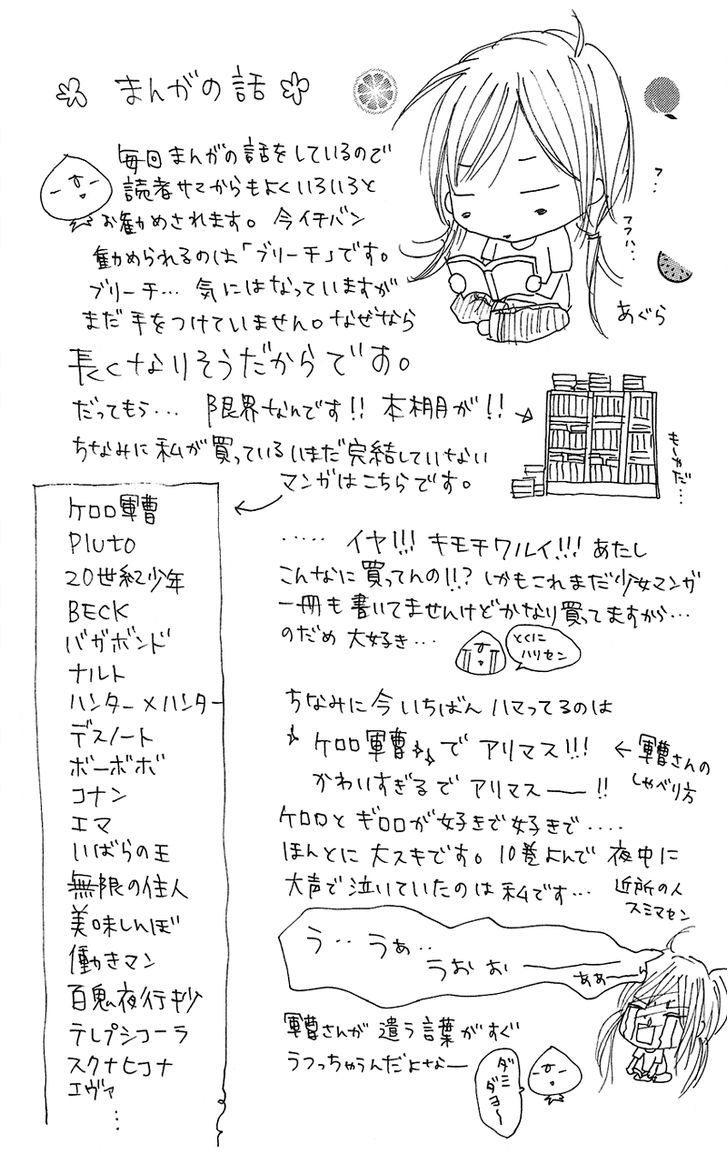 まんがの話
毎回まんがの話をしているので
読者サマからもよくいろいろと
お勧めされます。今イチバン
勧められるのは「ブリーチ」です。
ブリーチ… 気にはなっていますが
まだ手をつけていません。なぜなら
長くなりそうだからです。
だってもう… 限界なんです!! 本棚が!!
ちなみに私が買っているいまだ完結していない
マンガはこちらです。
フ…
フフハ…
あぐら
もーやだ…
ケロロ軍曹
Pluto
20世紀少年
BECK
バガボンド
ナルト
ハンター×ハンター
デスノート
ボーボボ
コナン
エマ
いばらの王
無限の住人
美味しんぼ
働きマン
百鬼夜行抄
テレプシコーラ
スクナヒコナ
エヴァ
⋮
‥‥‥ イヤ!!! キモチワルイ!!! あたし
こんなに買ってんの!!? しかもこれまだ少女マンガ
一冊も書いてませんけどかなり買ってますから…
のだめ 大好き…
とくに
ハリセン
ちなみに今いちばんハマってるのは
ケロロ軍曹でアリマス!!!
←軍曹さんの
しゃべり方
かわいすぎるでアリマスー!!
ケロロとギロロが好きで好きで‥‥
ほんとに大スキです。10巻よんで夜中に
大声で泣いていたのは私です…
近所の人
スミマセン
う‥うぁ‥
うおぉー
ああー
軍曹さんが遣う言葉がすぐ
うつっちゃうんだよなー
ダミ
ダヨ〜